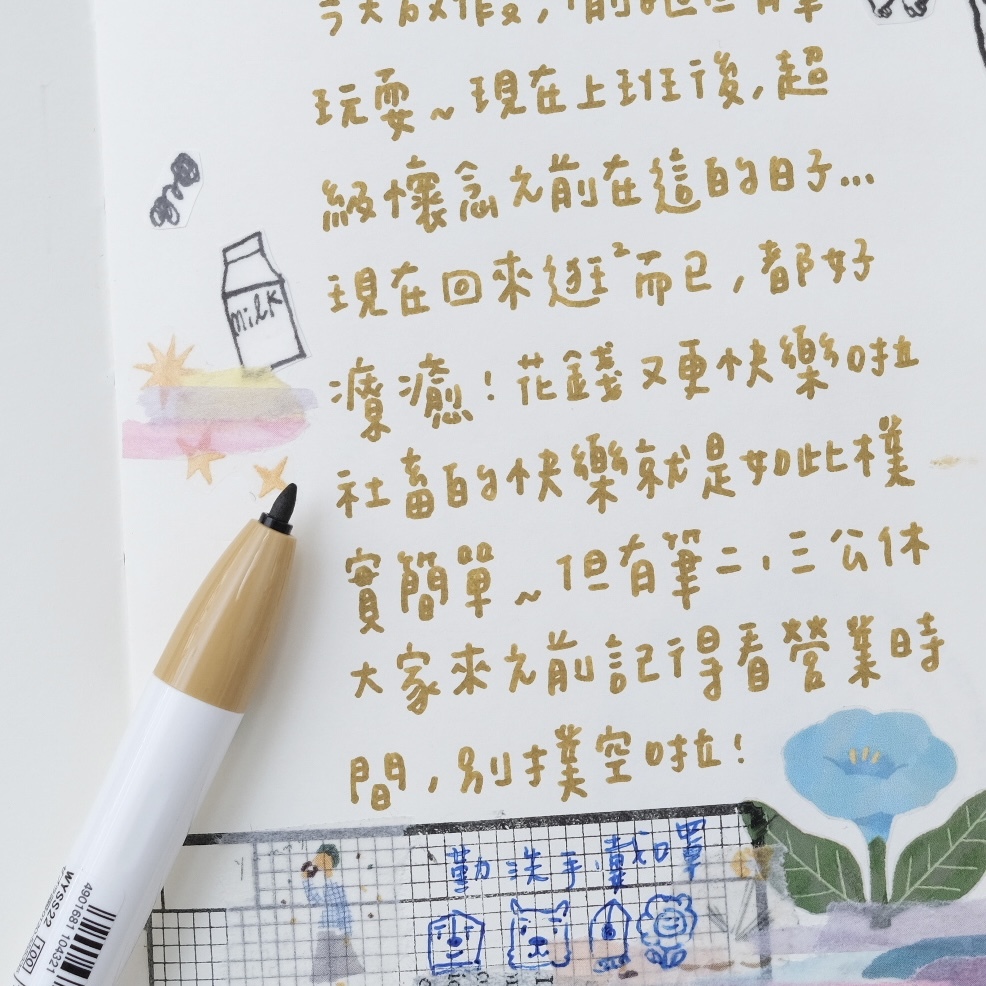 今天放假，
玩耍~現在上班後，超
級懷念之前在這的日子...
現在回來逛²而已，都好
療癒！花錢又更快樂啦
社畜的快樂就是如此樸
實簡單~但有筆二、三公休
大家來之前記得看營業時
間，別撲空啦！
milk
勤洗手戴口罩
WYSS22
4901681104321